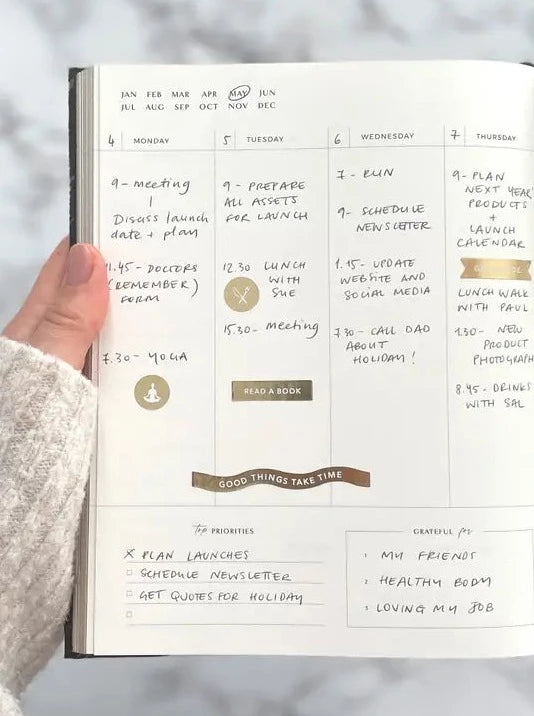 JAN FEB MAR APR MAY JUN
JUL AUG SEP OCT NOV DEC
4 MONDAY
9 - meeting
Discuss launch
date + plan
11.45 - DOCTORS
(REMEMBER)
FORM
7.30 - YOGA
5 TUESDAY
9 - PREPARE
ALL ASSETS
FOR LAUNCH
12.30 LUNCH
WITH
SUE
15.30 - meeting
READ A BOOK
6 WEDNESDAY
7 - RUN
9 - SCHEDULE
NEWSLETTER
1.15 - UPDATE
WEBSITE AND
SOCIAL MEDIA
7.30 - CALL DAD
ABOUT
HOLIDAY!
7 THURSDAY
9 - PLAN
NEXT YEAR'
PRODUCTS
+
LAUNCH
CALENDAR
LUNCH WALK
WITH PAUL
1.30 - NEW
PRODUCT
PHOTOGRAPH
8.45 - DRINKS
WITH SAL
GOOD THINGS TAKE TIME
Top PRIORITIES
X PLAN LAUNCHES
SCHEDULE NEWSLETTER
GET QUOTES FOR HOLIDAY
GRATEFUL for
1 MY FRIENDS
2 HEALTHY BODY
3 LOVING MY JOB